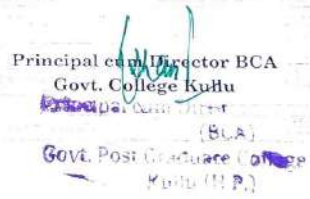 Principal cum Director BCA
Govt. College Kullu
Principal cum
(BCA)
Govt. Post Graduate College
Kullu (H.P.)